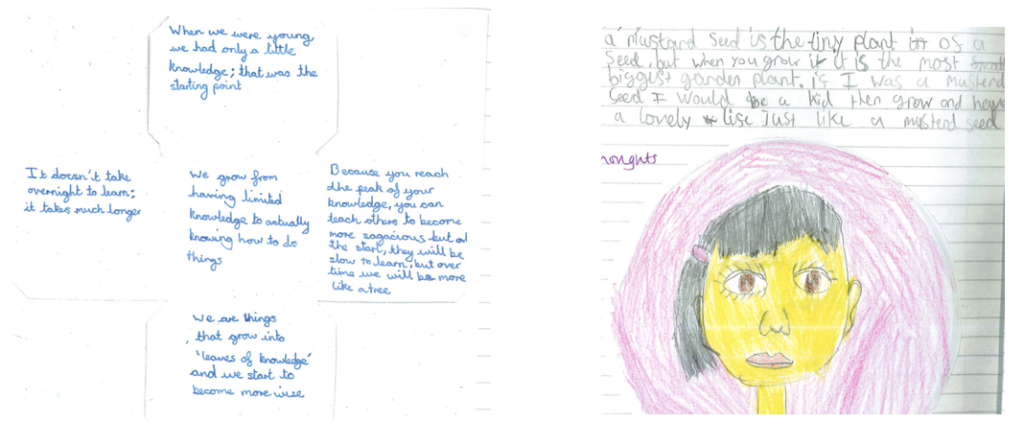 When we were young,
we had only a little
knowledge; that was the
starting point
It doesn't take
overnight to learn;
it takes much longer
We grow from
having limited
knowledge to actually
knowing how to do
things
Because you reach
the peak of your
knowledge, you can
teach others to become
more sagacious but at
the start, they will be
slow to learn, but over
time we will be more
like a tree
We are things
that grow into
'leaves of knowledge'
and we start to
become more wise
a mustard seed is the tiny plant of a
seed, but when you grow it it is the most
biggest garden plant. is I was a musterd
seed I would be a kid then grow and
a lovely Just like a musterd seed
houghts